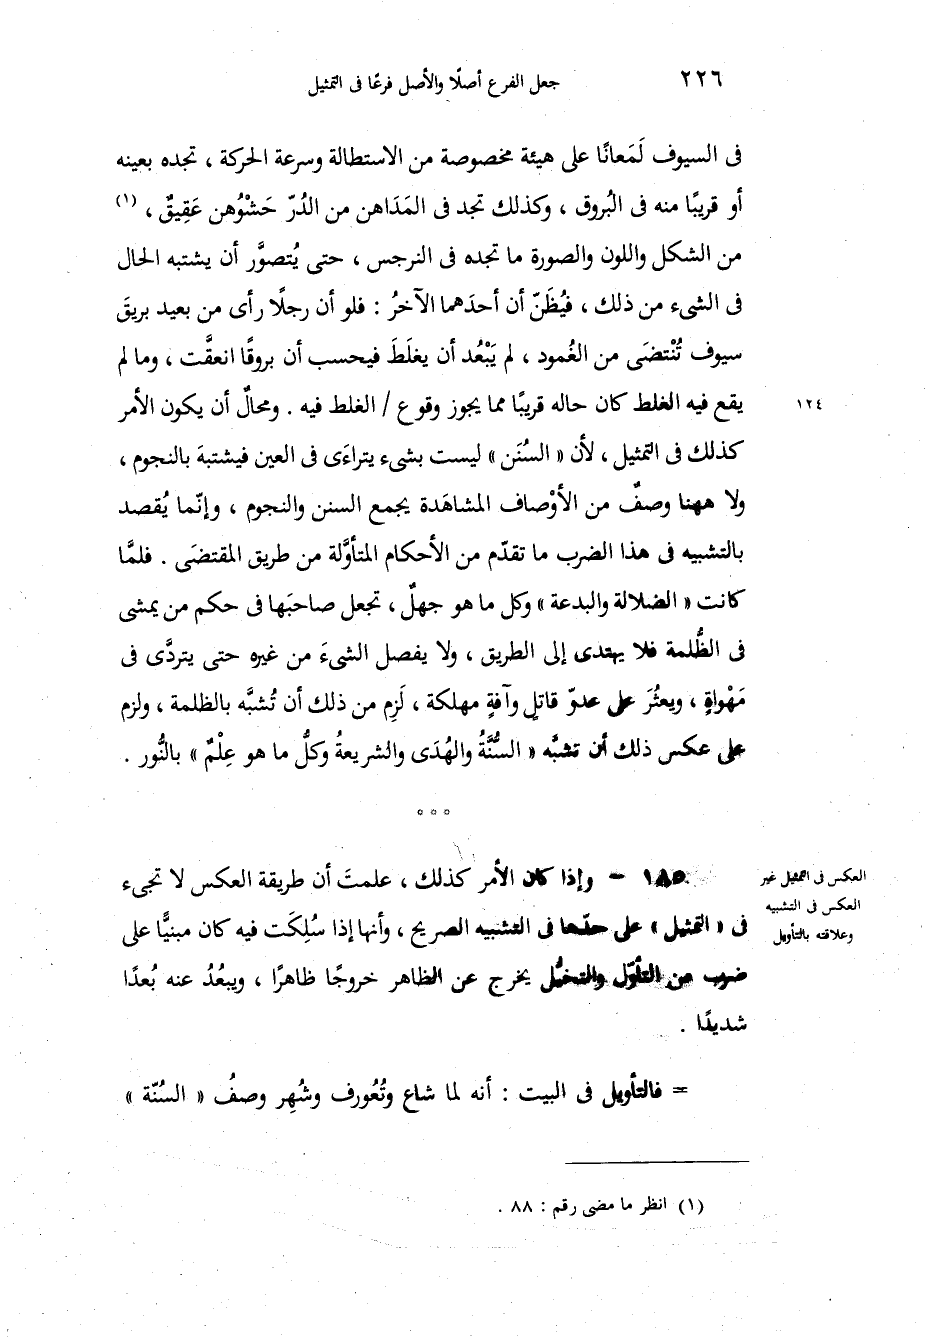 ٢٢٦
جعل الفرع أصلًا والأصل فرعًا فى التمثيل
فى السيوف لَمَعانًا على هيئة مخصوصة من الاستطالة وسرعة الحركة ، تجده بعينه
أو قريبًا منه فى البُروق ، وكذلك تجد فى المَدَاهن من الدُرّ حَشْوُهن عَقِيقٌ ، (١)
من الشكل واللون والصورة ما تجده فى النرجس ، حتى يُتصوَّر أن يشتبه الحال
فى الشىء من ذلك ، فيُظَنّ أن أحدَهما الآخرُ : فلو أن رجلًا رأى من بعيد بريقَ
سيوف تُنْتضَى من الغُمود ، لم يَبْعُد أن يغلَطَ فيحسب أن بروقًا انعقَّت ، وما لم
يقع فيه الغلط كان حاله قريبًا مما يجوز وقوع / الغلط فيه . ومحالٌ أن يكون الأمر
١٢٤
كذلك فى التمثيل ، لأن « السُنَن » ليست بشىء يتراءَى فى العين فيشتبهَ بالنجوم ،
ولا ههنا وصفٌ من الأوْصاف المشاهَدة يجمع السنن والنجوم ، وإنّما يُقصد
بالتشبيه فى هذا الضرب ما تقدّم من الأحكام المتأوَّلة من طريق المقتضَى . فلمَّا
كانت « الضلالة والبدعة » وكل ما هو جهلٌ ، تجعل صاحبَها فى حكم من يمشى
فى الظُّلمة فلا يهتدى إلى الطريق ، ولا يفصل الشىءَ من غيره حتى يتردَّى فى
مَهْواةٍ ، ويعثُرَ على عدوّ قاتلٍ وآفةٍ مهلكة ، لَزِم من ذلك أن تُشبَّه بالظلمة ، ولزم
على عكس ذلك أن تشبَّه « السُّنَّةُ والهُدَى والشريعةُ وكلُّ ما هو عِلْمٌ » بالنُّور .
° ° °
١٨٥ – وإذا كان الأمر كذلك ، علمتَ أن طريقة العكس لا تجىء
فى « التمثيل » على حدّها فى التشبيه الصريح ، وأنها إذا سُلِكَت فيه كان مبنيًّا على
ضرب من التأوّل والتخيُّل يخرج عن الظاهر خروجًا ظاهرًا ، ويبعُدُ عنه بُعدًا
شديدًا .
العكس فى التمثيل غير
العكس فى التشبيه
وعلاقته بالتأويل
= فالتأويل فى البيت : أنه لما شاع وتُعُورف وشُهِر وصفُ « السُنّة »
(١) انظر ما مضى رقم : ٨٨ .